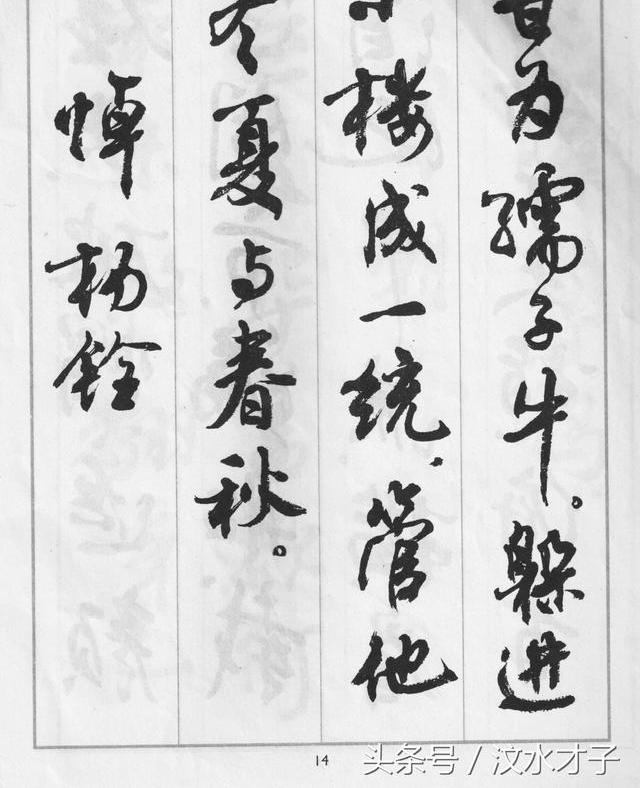 为孺子牛。躲进
楼成一统，管他
冬夏与春秋。
悼杨铨
14
头条号 / 汶水才子